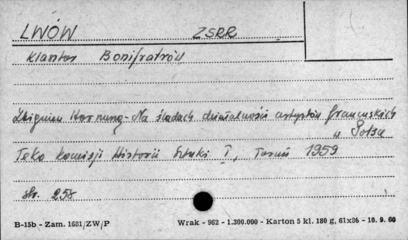 LWÓW ZSRR
Klasztor Bonifratrów
Zbigniew Hornung - Na śladach działalności artystów francuskich
w Polsce
Teka Komisji Historii Sztuki I, Toruń 1959
str. 258
B-15b - Zam. 1681/ZW/P Wrak - 962 - 1.300.000 - Karton 5 kl. 180 g, 61x86 - 10. 9. 60